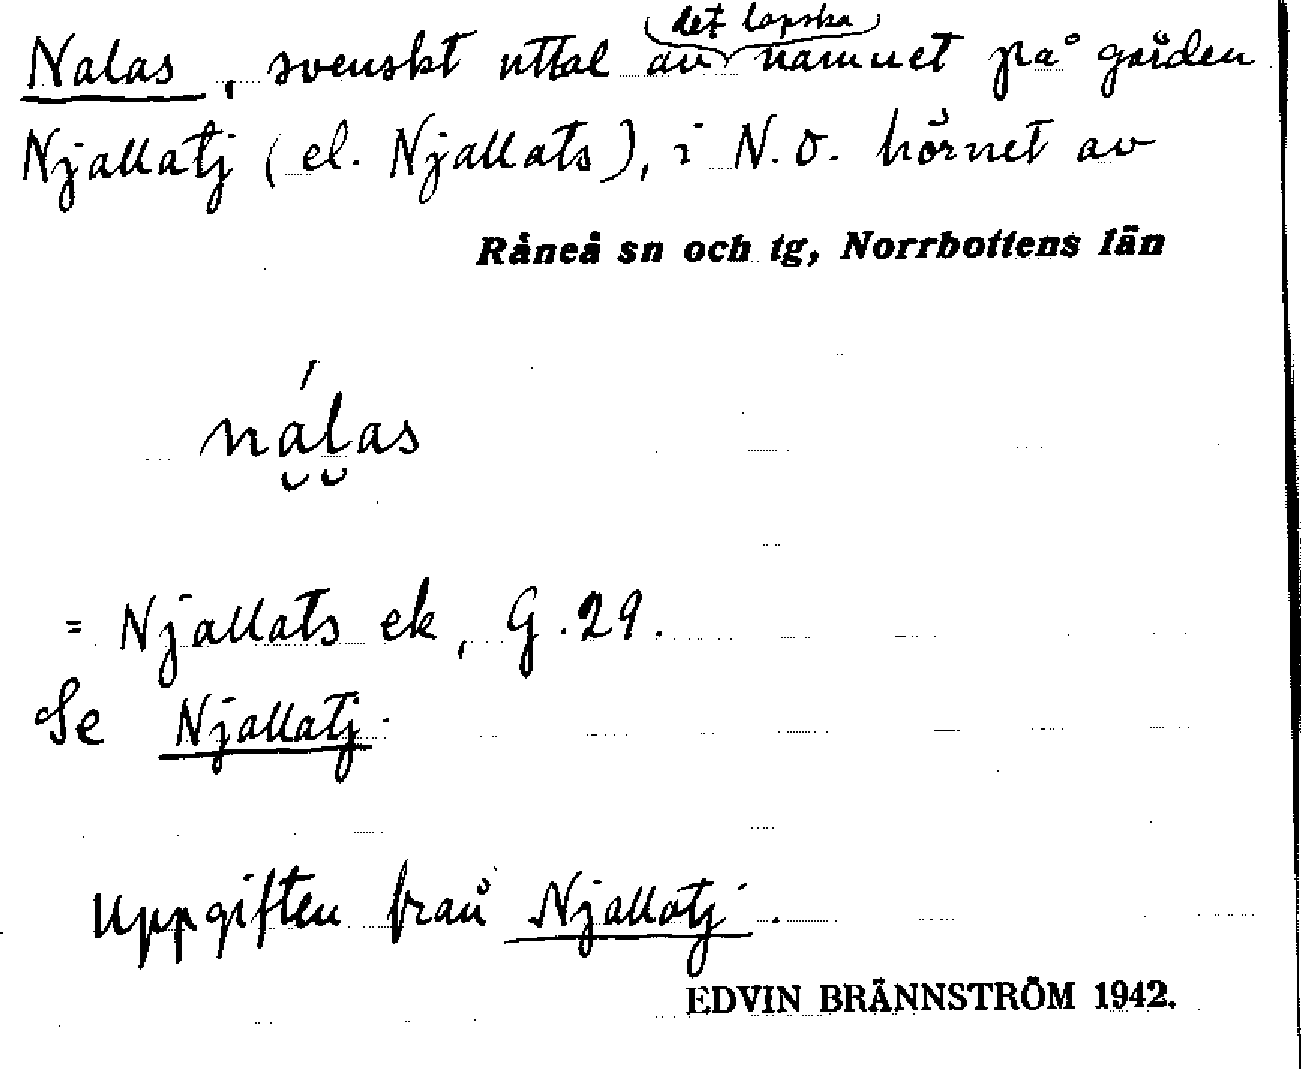 Nalas, svenskt uttal av det lapska namnet på gården
Njallatj (el. Njallats), i N.O. hörnet av
Råneå sn och tg, Norrbottens län
nálas
= Njallats ek, G. 29.
Se Njallatj.
Uppgiften från Njallatj.
EDVIN BRÄNNSTRÖM 1942.